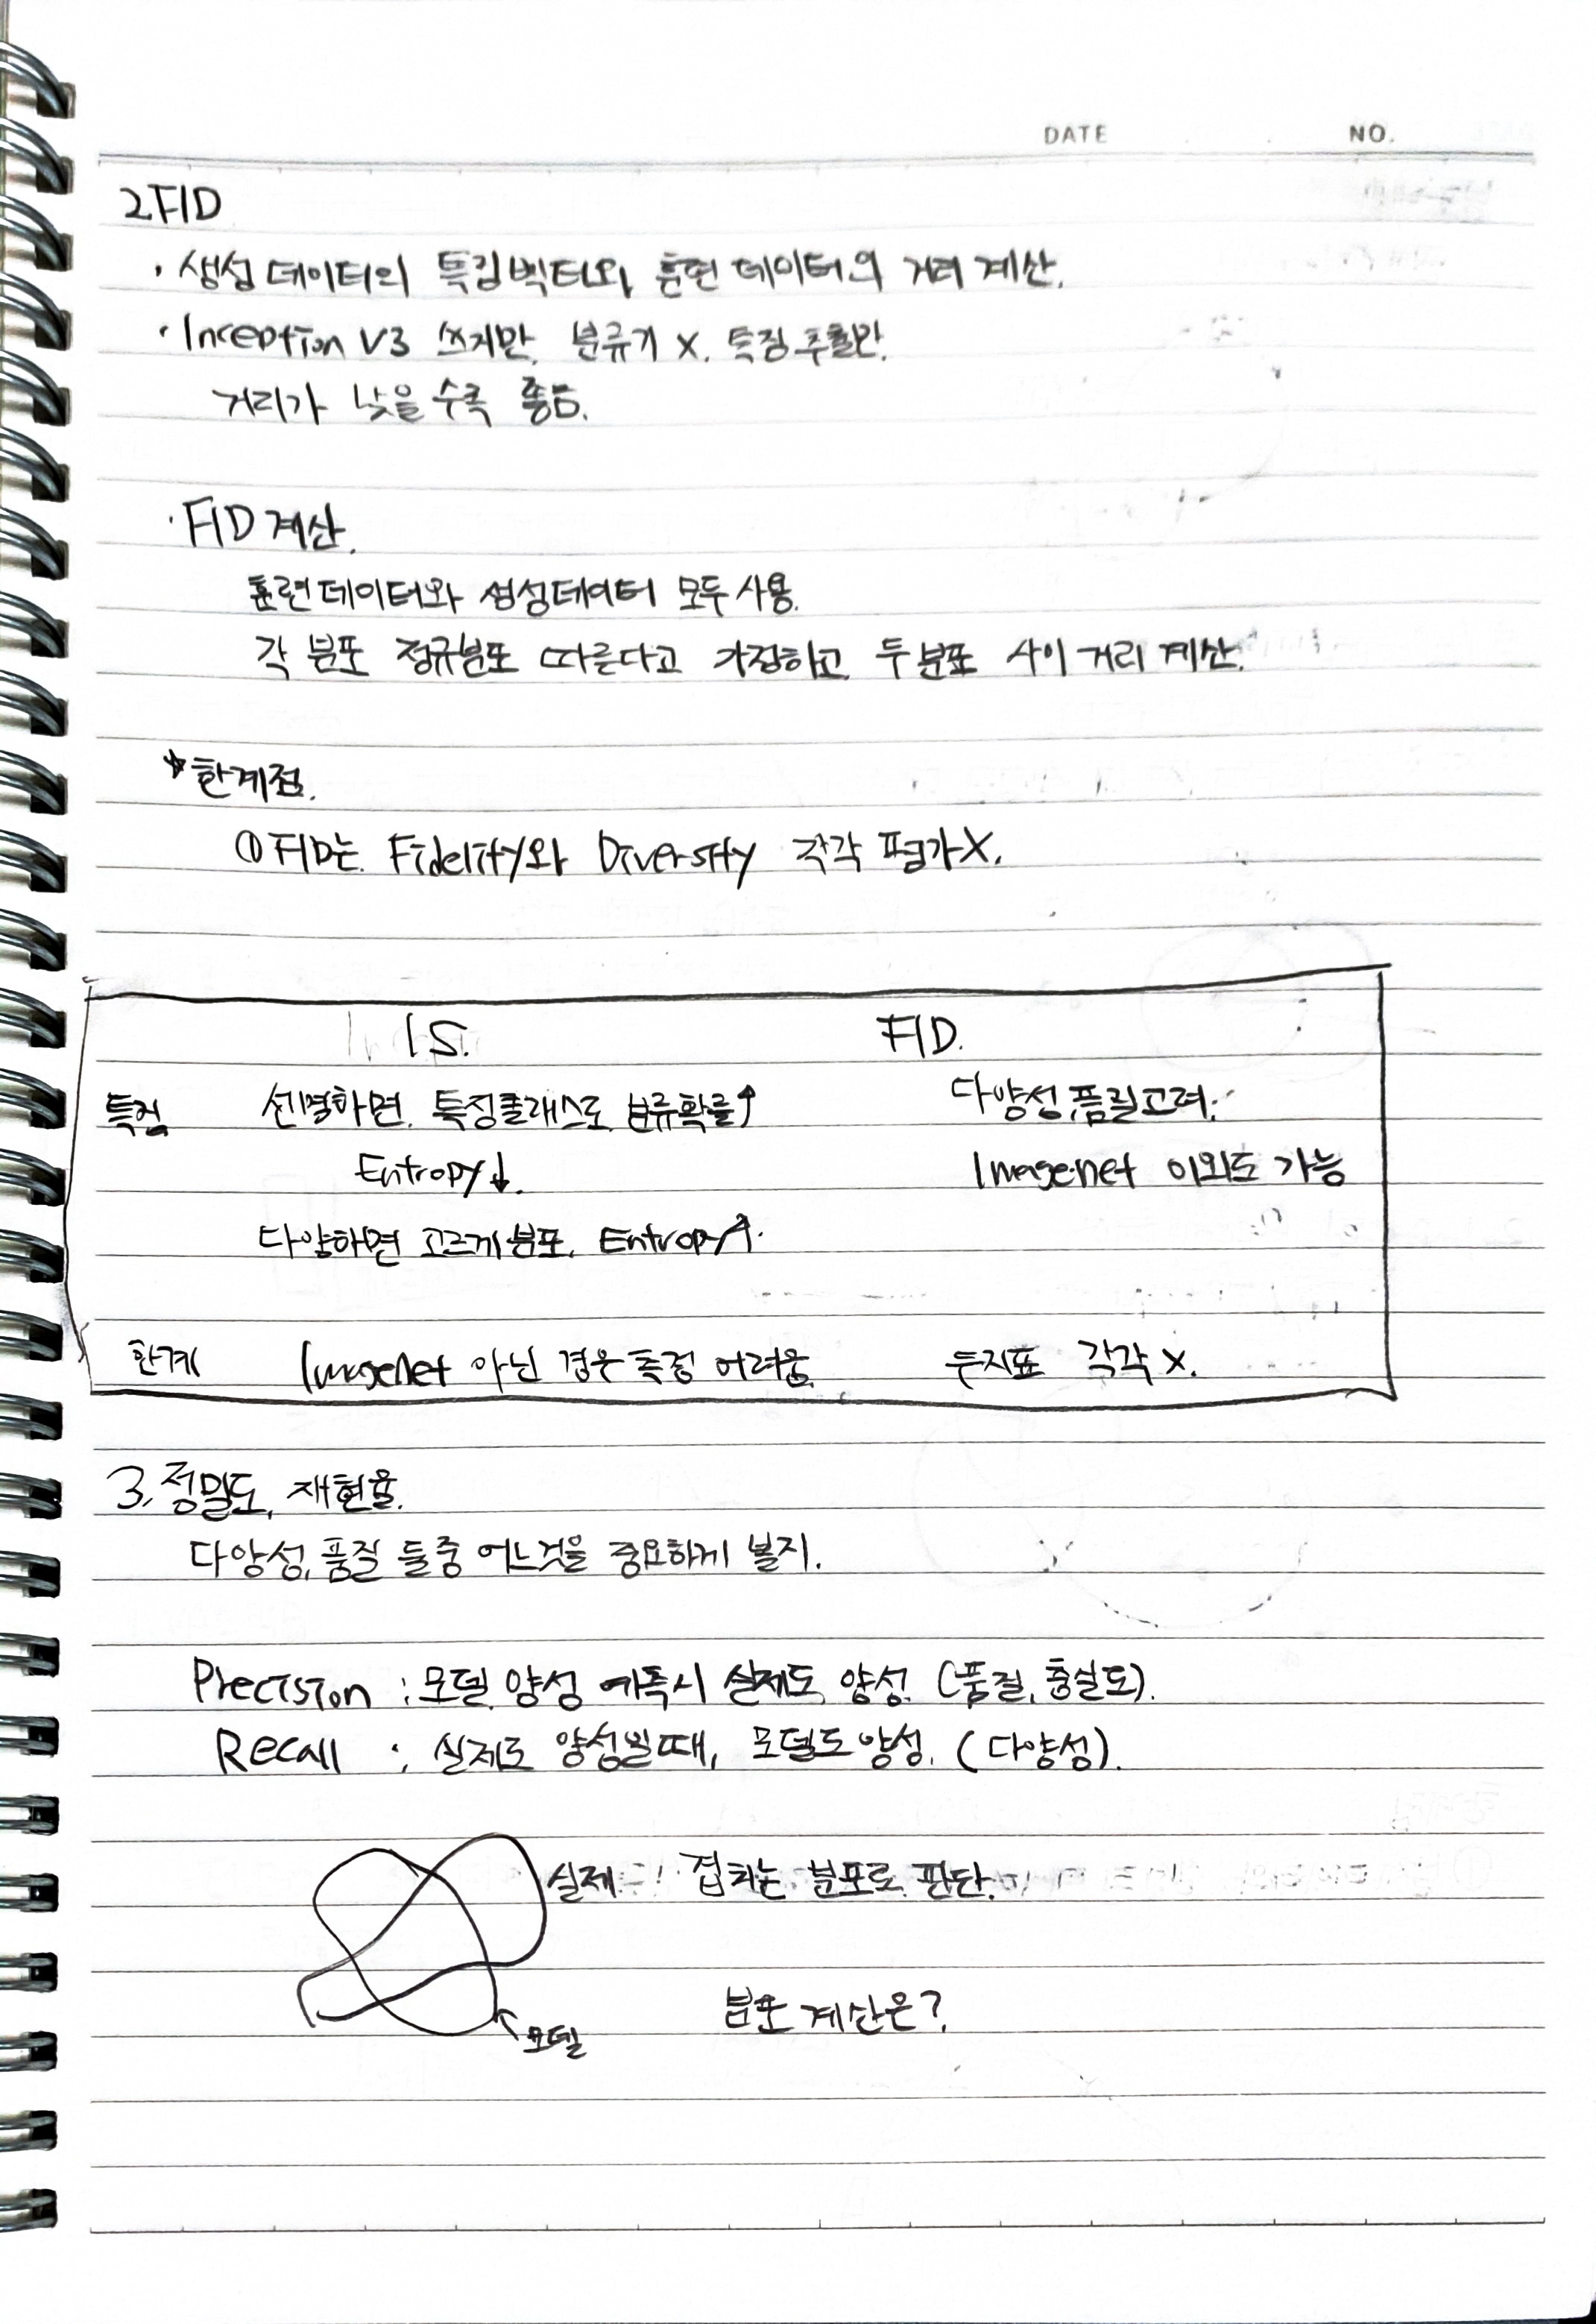 DATE NO.
2.FID
· 생성 데이터의 특징벡터와 훈련 데이터의 거리 계산.
· Inception V3 쓰지만, 분류기 X. 특징 추출만.
거리가 낮을 수록 좋음.
· FID 계산.
훈련데이터와 생성데이터 모두 사용.
각 분포 정규분포 따른다고 가정하고, 두 분포 사이 거리 계산.
* 한계점.
① FID는 Fidelity와 Diversity 각각 평가X.
I.S. FID.
특징 선명하면, 특정클래스로 분류확률↑ 다양성,품질고려.
Entropy↓. Imagenet 이외도 가능
다양하면 고르게 분포, Entropy↑.
한계 ImageNet 아닌 경우 측정 어려움. 두지표 각각 X.
3. 정밀도, 재현율.
다양성, 품질 둘중 어느것을 중요하게 볼지.
Precision : 모델 양성 예측시 실제도 양성. (품질, 충실도).
Recall : 실제로 양성일때, 모델도 양성. (다양성).
실제 겹치는 분포로 판단.
분포 계산은?
↖모델